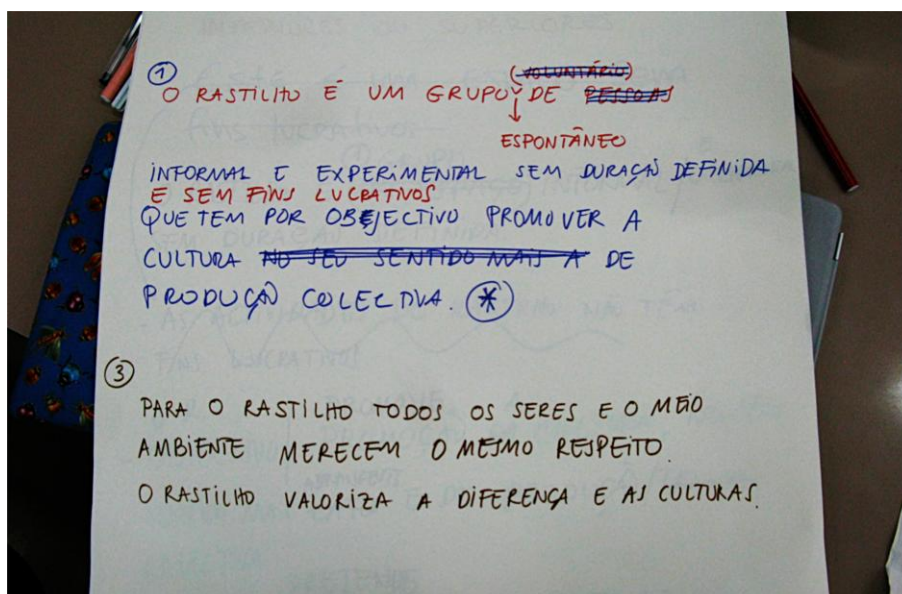 ①
(VOLUNTÁRIO)
O RASTILHO É UM GRUPO DE PESSOAS
ESPONTÂNEO
INFORMAL E EXPERIMENTAL SEM DURAÇÃO DEFINIDA
E SEM FINS LUCRATIVOS
QUE TEM POR OBJECTIVO PROMOVER A
CULTURA NO SEU SENTIDO MAIS A DE
PRODUÇÃO COLECTIVA. *
③
PARA O RASTILHO TODOS OS SERES E O MEIO
AMBIENTE MERECEM O MESMO RESPEITO.
O RASTILHO VALORIZA A DIFERENÇA E AS CULTURAS.